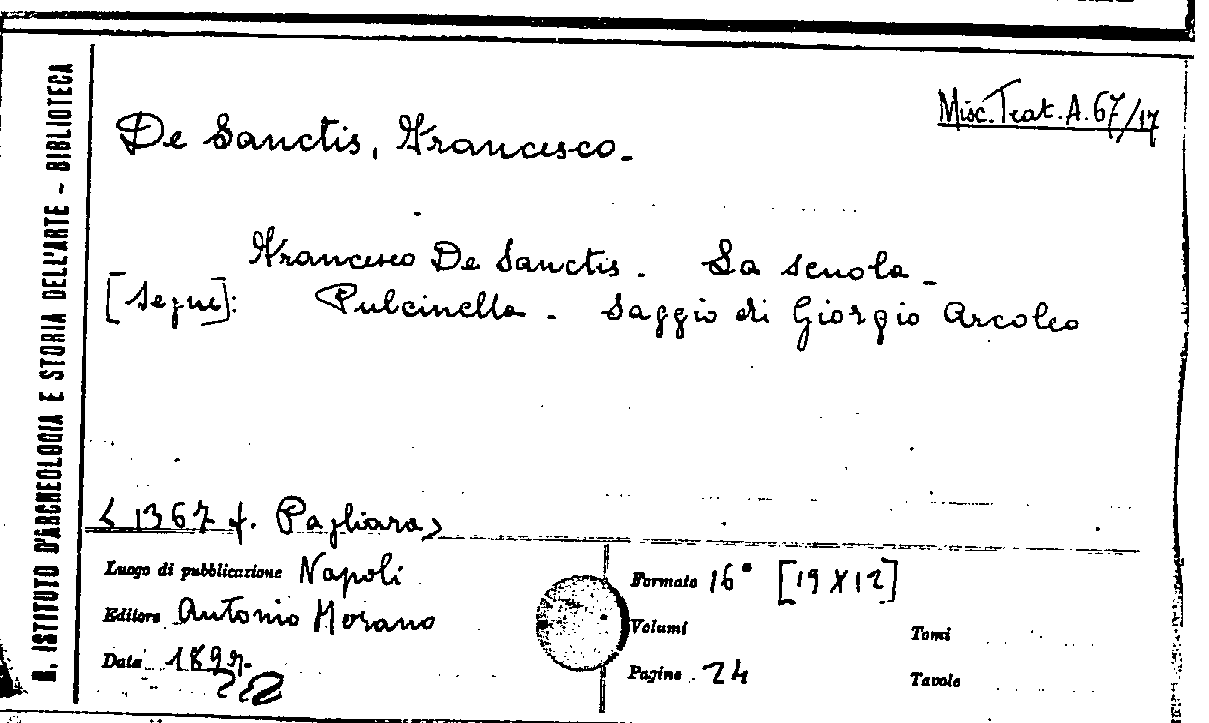 R. ISTITUTO D'ARCHEOLOGIA E STORIA DELL'ARTE - BIBLIOTECA
Misc. Trat. A. 67/17
De Sanctis, Francesco.
Francesco De Sanctis. La scuola.
[Segue]: Pulcinella. Saggio di Giorgio Arcoleo
< 1367 f. Pagliara >
Luogo di pubblicazione Napoli
Editore Antonio Morano
Data
Formato 16° [19 X 12]
Volumi
Tomi
Pagine 24
Tavole